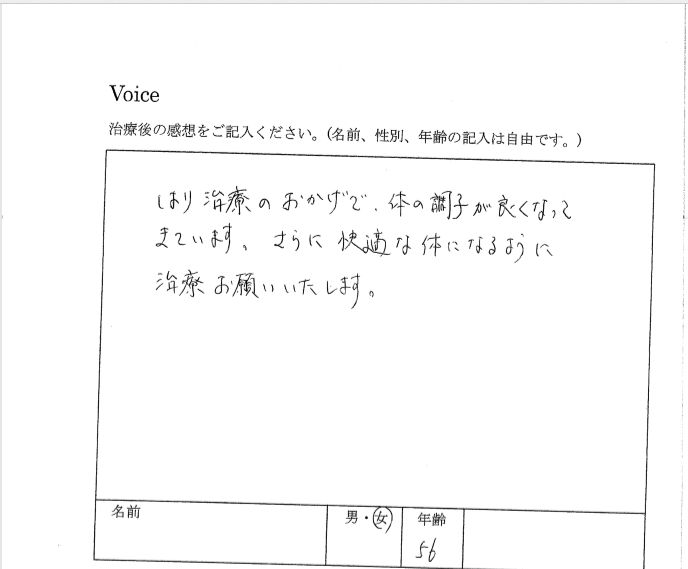 Voice
治療後の感想をご記入ください。（名前、性別、年齢の記入は自由です。）
はり治療のおかげで、体の調子が良くなって
きています。さらに快適な体になるように
治療お願いいたします。
名前
男・女
年齢
56